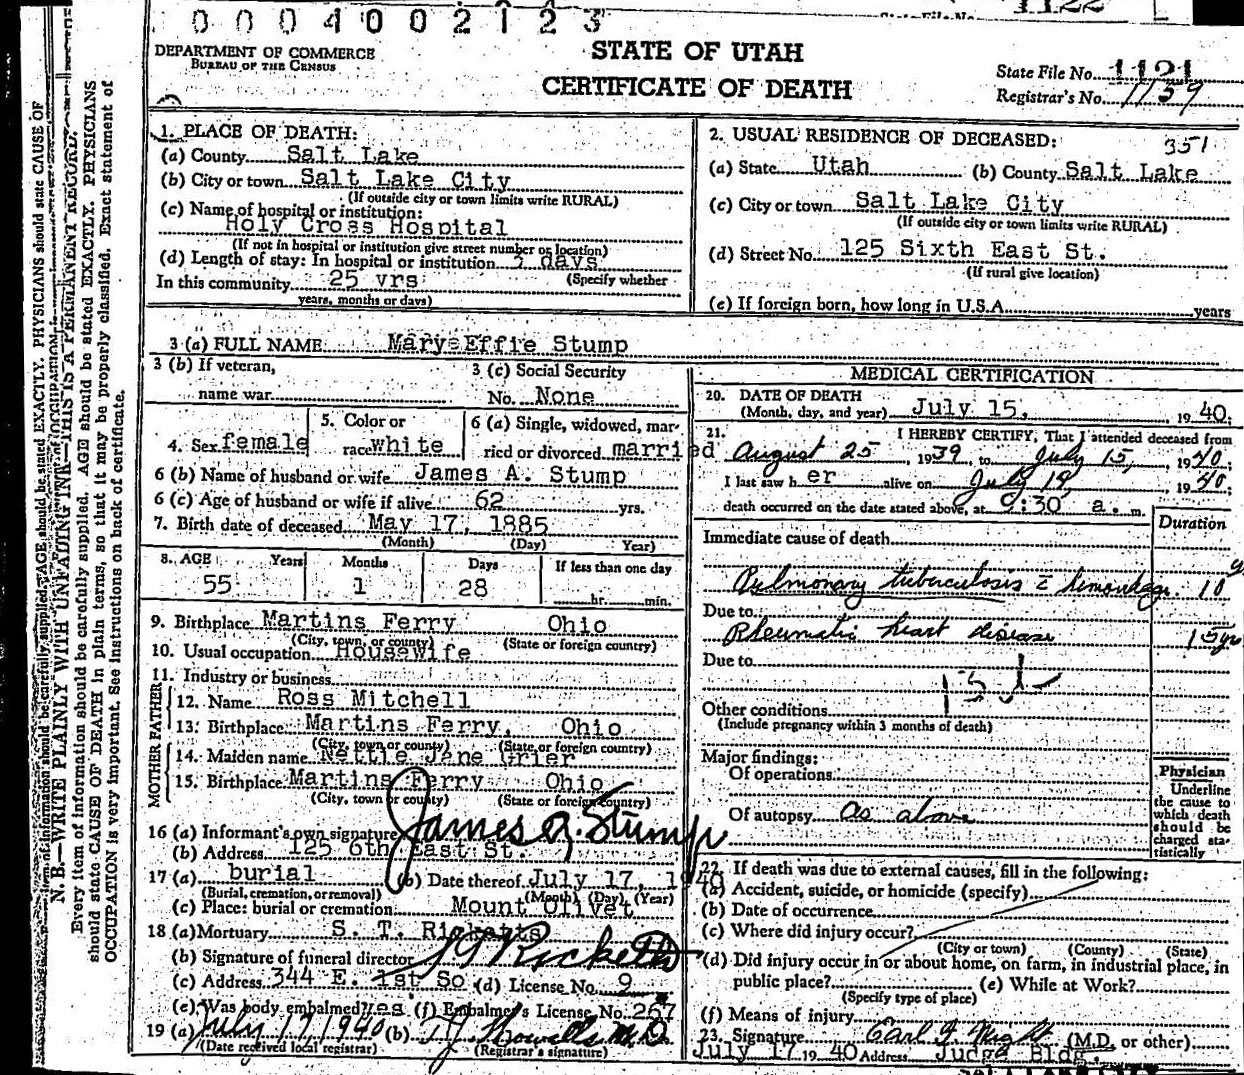 0 0 0 4 0 0 2 1 2 3
1122
DEPARTMENT OF COMMERCE
BUREAU OF THE CENSUS
STATE OF UTAH
CERTIFICATE OF DEATH
State File No. 1121
Registrar's No. 1159
N. B.—WRITE PLAINLY WITH UNFADING INK—THIS IS A PERMANENT RECORD.
Every item of information should be carefully supplied. AGE should be stated EXACTLY. PHYSICIANS
should state CAUSE OF DEATH in plain terms, so that it may be properly classified. Exact statement of
OCCUPATION is very important. See instructions on back of certificate.
1. PLACE OF DEATH:
(a) County Salt Lake
(b) City or town Salt Lake City
(If outside city or town limits write RURAL)
(c) Name of hospital or institution:
Holy Cross Hospital
(If not in hospital or institution give street number or location)
(d) Length of stay: In hospital or institution days
(Specify whether
In this community 25 yrs
years, months or days)
2. USUAL RESIDENCE OF DECEASED: 351
(a) State Utah (b) County Salt Lake
(c) City or town Salt Lake City
(If outside city or town limits write RURAL)
(d) Street No. 125 Sixth East St.
(If rural give location)
(e) If foreign born, how long in U.S.A. years
3 (a) FULL NAME Mary Effie Stump
3 (b) If veteran,
name war
3 (c) Social Security
No. None
4. Sex female
5. Color or
race white
6 (a) Single, widowed, mar-
ried or divorced married
6 (b) Name of husband or wife James A. Stump
6 (c) Age of husband or wife if alive 62 yrs.
7. Birth date of deceased May 17, 1885
(Month) (Day) Year)
8. AGE Years Months Days If less than one day
55 1 28 hr. min.
9. Birthplace Martins Ferry Ohio
(City, town, or county) (State or foreign country)
10. Usual occupation Housewife
11. Industry or business
FATHER
12. Name Ross Mitchell
13. Birthplace Martins Ferry, Ohio
(City, town or county) (State or foreign country)
MOTHER
14. Maiden name Nettie Jane Grier
15. Birthplace Martins Ferry Ohio
(City, town or county) (State or foreign country)
16 (a) Informant's own signature James A. Stump
(b) Address 125 6th East St.
17 (a) burial (b) Date thereof July 17, 1940
(Burial, cremation, or removal) (Month) (Day) (Year)
(c) Place: burial or cremation Mount Olivet
18 (a) Mortuary S. T. Ricketts
(b) Signature of funeral director Ricketts
(c) Address 344 E. 1st So (d) License No. 9
(e) Was body embalmed? yes (f) Embalmer's License No. 267
19 (a) July 17 1940 (b) T J Howells M.D
(Date received local registrar) (Registrar's signature)
MEDICAL CERTIFICATION
20. DATE OF DEATH
(Month, day, and year) July 15, 1940.
21. I HEREBY CERTIFY, That I attended deceased from
August 25, 1939 to July 15, 1940.
I last saw her alive on July 14, 1940.
death occurred on the date stated above, at 9:30 a. m.
Duration
Immediate cause of death
Pulmonary tuberculosis c̄ hemorrhage. 10 y
Due to
Rheumatic heart disease 15 yr
Due to
Other conditions
(Include pregnancy within 3 months of death)
Major findings:
Of operations
Of autopsy as above
Physician
Underline
the cause to
which death
should be
charged sta-
tistically
22. If death was due to external causes, fill in the following:
(a) Accident, suicide, or homicide (specify)
(b) Date of occurrence
(c) Where did injury occur?
(City or town) (County) (State)
(d) Did injury occur in or about home, on farm, in industrial place, in
public place? (e) While at Work?
(Specify type of place)
(f) Means of injury
23. Signature Earl (M.D. or other)
July 17 1940 Address Judge Bldg.